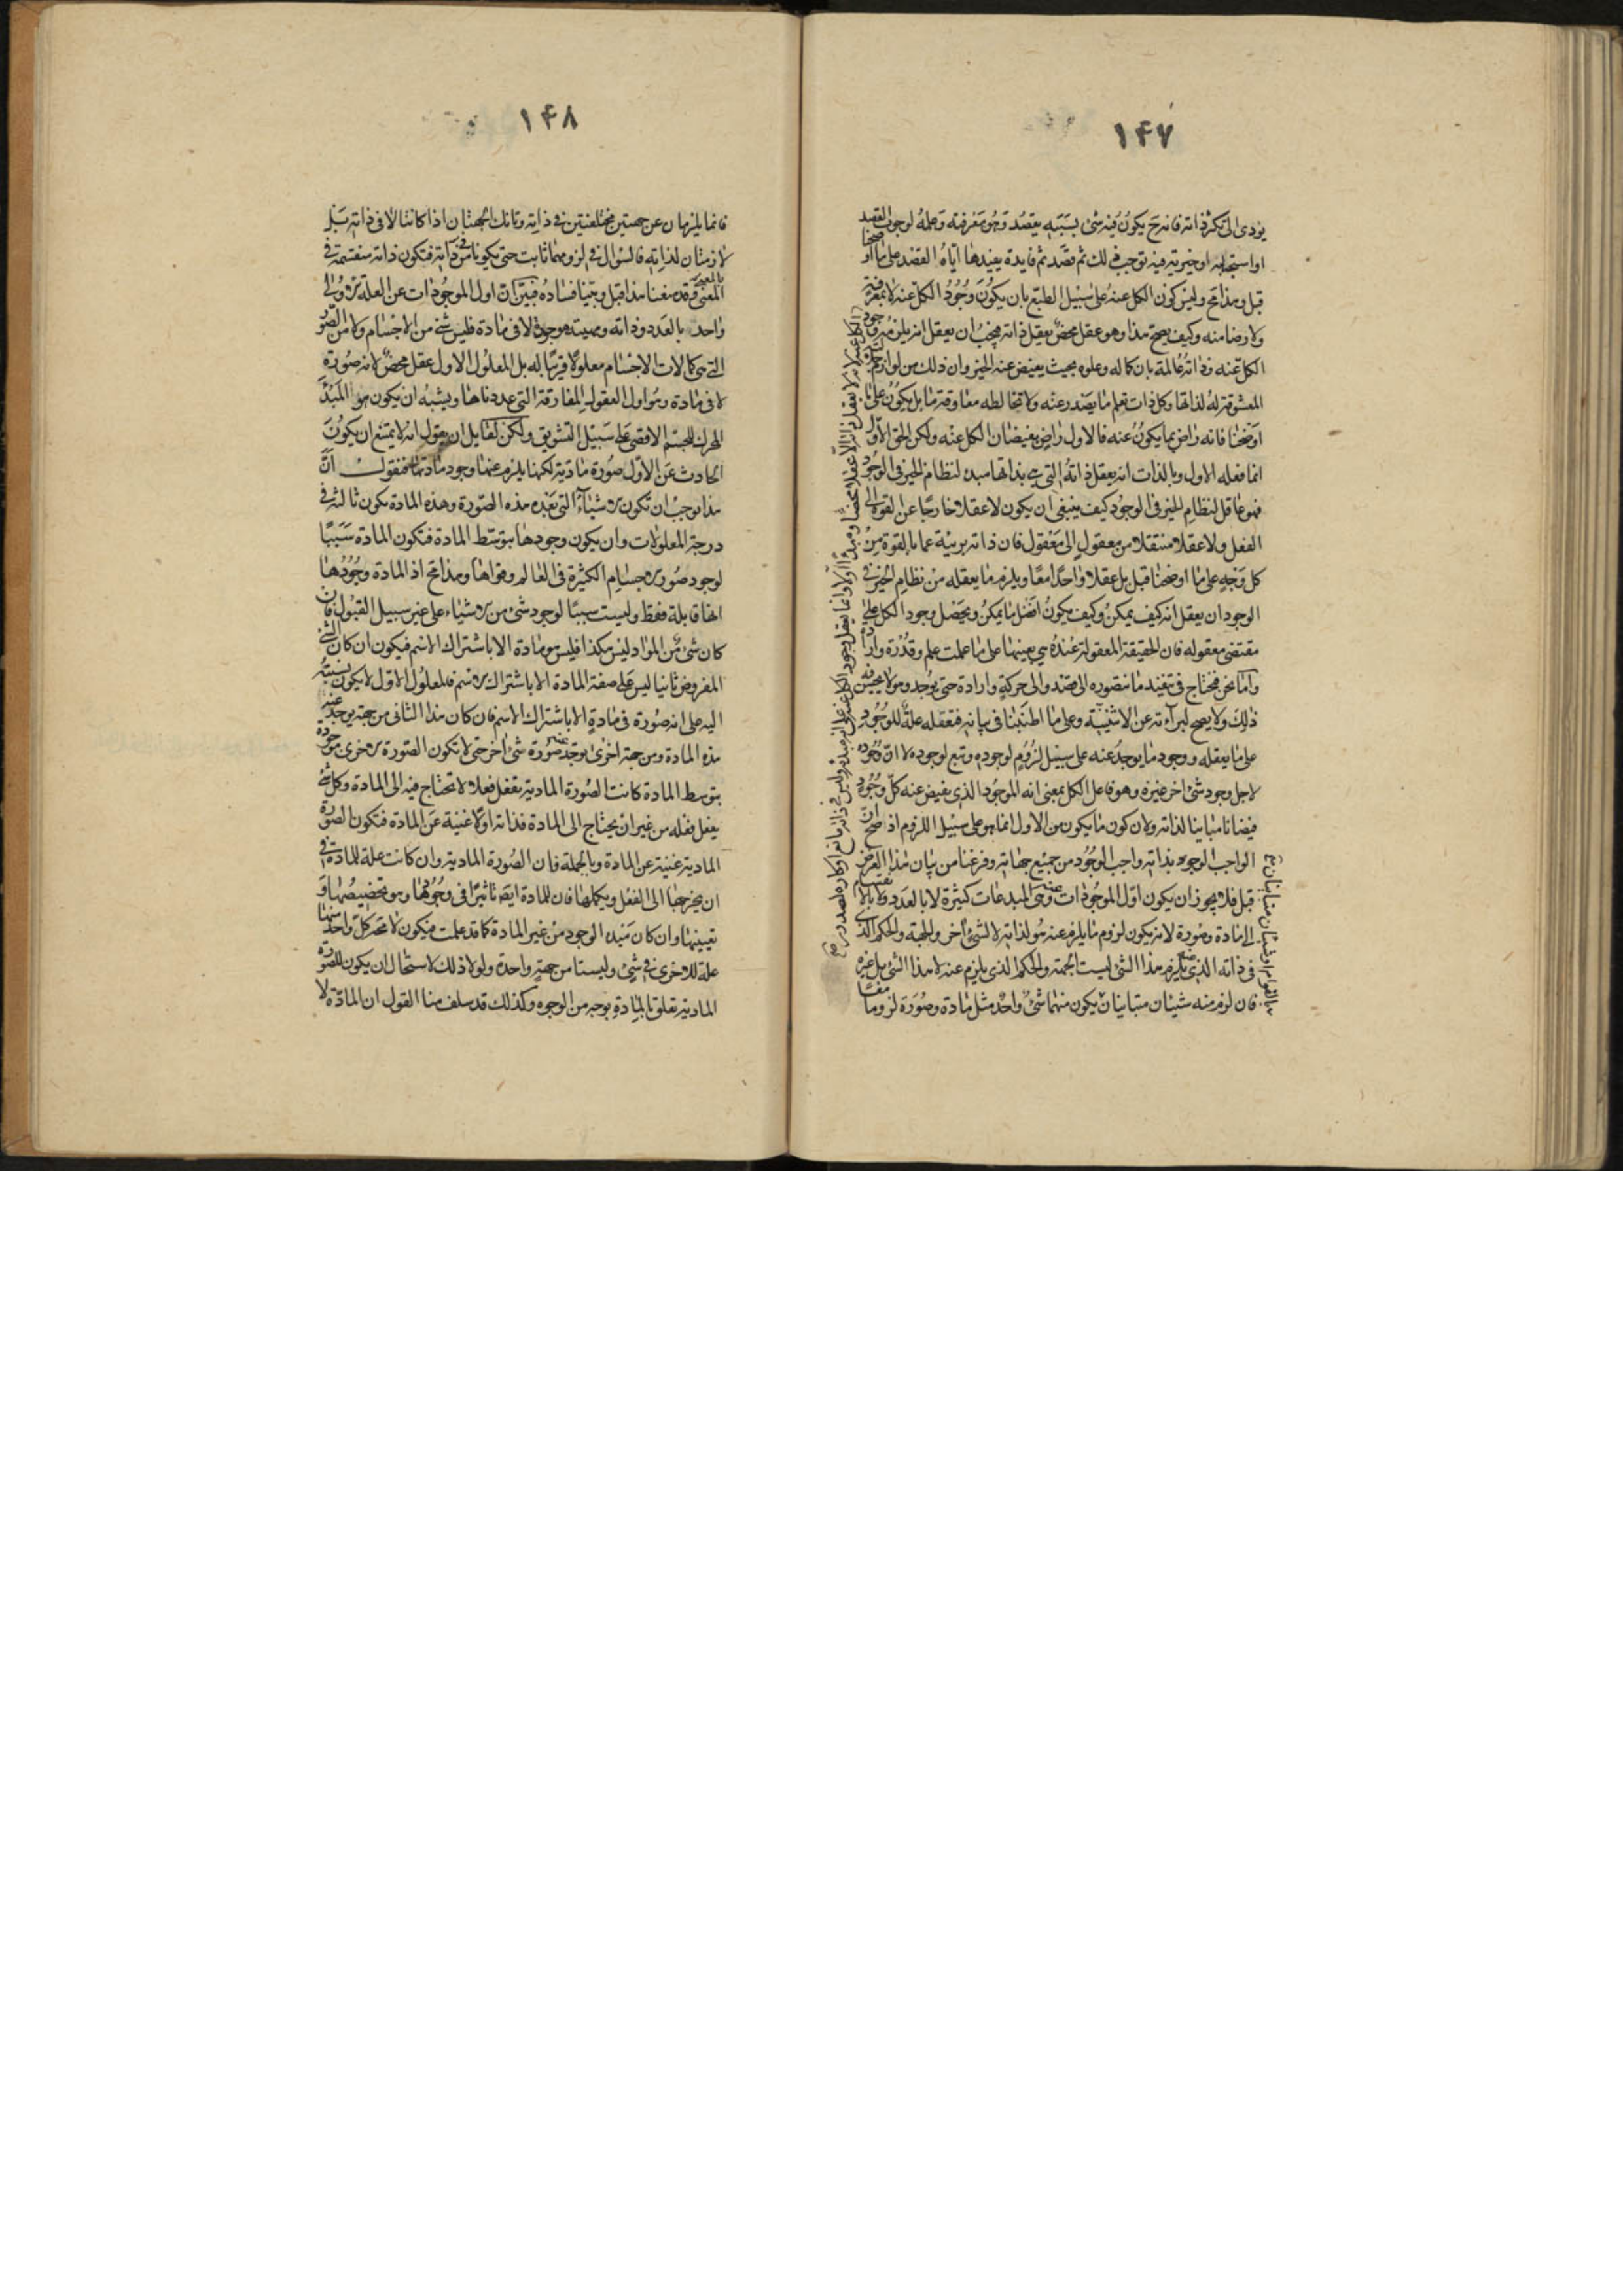 ١٤٧
يؤدى الى تكثر ذاته فانه ح يكون فيه شئ بسببه يقصد وهو معرفته وعلمه لوجوب القصد
او استحبابه او خيرية فيه توجب ذلك ثم قصد ثم فايدة يفيدها اياه القصد على ما اوضحنا
قبل وهذا مح وليس كون الكل عنه على سبيل الطبع بان يكون وجود الكل عنه لا بمعرفة
ولا رضا منه وكيف يصح هذا وهو عقل محض يعقل ذاته فيجب ان يعقل انه يلزمه وجود
الكل عنه وذاته عالمة بان كماله وعلوه بحيث يفيض عنه الخير وان ذلك من لوازم جلالته
المعشوقة له لذاتها وكل ذات تعلم ما يصدر عنه ولا تخالطه معاوقة ما بل يكون على ما
اوضحنا فانه راض بما يكون عنه فالاول راض بفيضان الكل عنه ولكن الحق الاول
انما فعله الاول وبالذات انه يعقل ذاته التى هى بذاتها مبدء لنظام الخير فى الوجود
فهو عاقل لنظام الخير فى الوجود كيف ينبغى ان يكون لا عقلا خارجا عن القوة الى
الفعل ولا عقلا منتقلا من معقول الى معقول فان ذاته بريئة عما بالقوة من
كل وجه على ما اوضحنا قبل بل عقلا واحدا معا ويلزم ما يعقله من نظام الخير فى
الوجود ان يعقل انه كيف يمكن وكيف يكون افضل ما يمكن ويحصل وجود الكل على
مقتضى معقوله فان الحقيقة المعقولة عنده هى بعينها على ما علمت علم وقدرة وارادة
واما نحن فنحتاج فى تنفيذ ما نتصوره الى قصد والى حركة وارادة حتى يوجد وهو لا يحسن فيه
ذلك ولا يصح لبرآءته عن الاثنينية وعلى ما اطنبنا فى بيانه فتعقله علة للوجود
على ما يعقله ووجود ما يوجد عنه على سبيل لزوم لوجوده وتبع لوجوده لا ان وجوده
لاجل وجود شئ اخر غيره وهو فاعل الكل بمعنى انه الموجود الذى يفيض عنه كل وجود
فيضانا مباينا لذاته ولان كون ما يكون من الاول انما هو على سبيل اللزوم اذا صح ان
الواجب الوجود بذاته واجب الوجود من جميع جهاته وفرغنا من بيان هذا الغرض
قبل فلا يجوز ان يكون اول الموجودات عنه وهى المبدعات كثيرة لا بالعدد ولا بالانقسام
الى مادة وصورة لانه يكون لزوم ما يلزم عنه هو لذاته لا لشئ اخر والجهة والحكم الذى
فى ذاته الذى يلزم منه هذا الشئ ليست الجهة والحكم الذى يلزم عنه لا هذا الشئ بل غيره
فان لزم منه شيئان متباينان يكون منهما شئ واحد مثل مادة وصورة لزوما معا
١٤٨
فانما يلزمان عن جهتين مختلفتين فى ذاته وتانك الجهتان اذا كانتا لا فى ذاته بل
لازمتان لذاته فالسؤال فى لزومهما ثابت حتى تكونا من ذاته فتكون ذاته منقسمة فى
المعنى وقد منعنا هذا قبل وبينا فساده فبين ان اول الموجودات عن العلة الاولى
واحد بالعدد وذاته ومهيته موجودة لا فى مادة فليس شئ من الاجسام ولا من الصور
التى هى كمالات الاجسام معلولا قريبا له بل المعلول الاول عقل محض لانه صورة
لا فى مادة وهو اول العقول المفارقة التى عددناها ويشبه ان يكون هو المبدء
المحرك للجسم الاقصى على سبيل التشويق ولكن لقايل ان يقول انه لا يمتنع ان يكون
الحادث عن الاول صورة مادية لكنها يلزم عنها وجود مادتها فنقول ان
هذا يوجب ان تكون الاشياء التى بعد هذه الصورة وهذه المادة تكون ثالثة فى
درجة المعلولات وان يكون وجودها بتوسط المادة فتكون المادة سببا
لوجود صور الاجسام الكثيرة فى العالم وقواها وهذا مح اذ المادة وجودها
انها قابلة فقط وليست سببا لوجود شئ من الاشياء على غير سبيل القبول فان
كان شئ من المواد ليس هكذا فليس هو مادة الا باشتراك الاسم فيكون ان كان الشئ
المفروض ثانيا ليس على صفة المادة الا باشتراك الاسم فالمعلول الاول لا يكون نسبته
اليه على انه صورة فى مادة الا باشتراك الاسم فان كان هذا الثانى من جهة يوجد عنه
هذه المادة ومن جهة اخرى يوجد عنه صورة شئ اخر حتى لا تكون الصورة الاخرى موجودة
بتوسط المادة كانت الصورة المادية تفعل فعلا لا تحتاج فيه الى المادة وكل شئ
يفعل فعله من غير ان يحتاج الى المادة فذاته اولا غنية عن المادة فتكون الصورة
المادية غنية عن المادة وبالجملة فان الصورة المادية وان كانت علة للمادة فى
ان يخرجها الى الفعل ويكملها فان للمادة ايضا تاثيرا فى وجودها وهو تخصيصها و
تعيينها وان كان مبدء الوجود من غير المادة كما قد علمت فيكون لا محة كل واحد منهما
علة للاخرى فى شئ وليستا من جهة واحدة ولولا ذلك لاستحال ان يكون للصورة
المادية تعلق بالمادة بوجه من الوجوه وكذلك قد سلف منا القول ان المادة لا